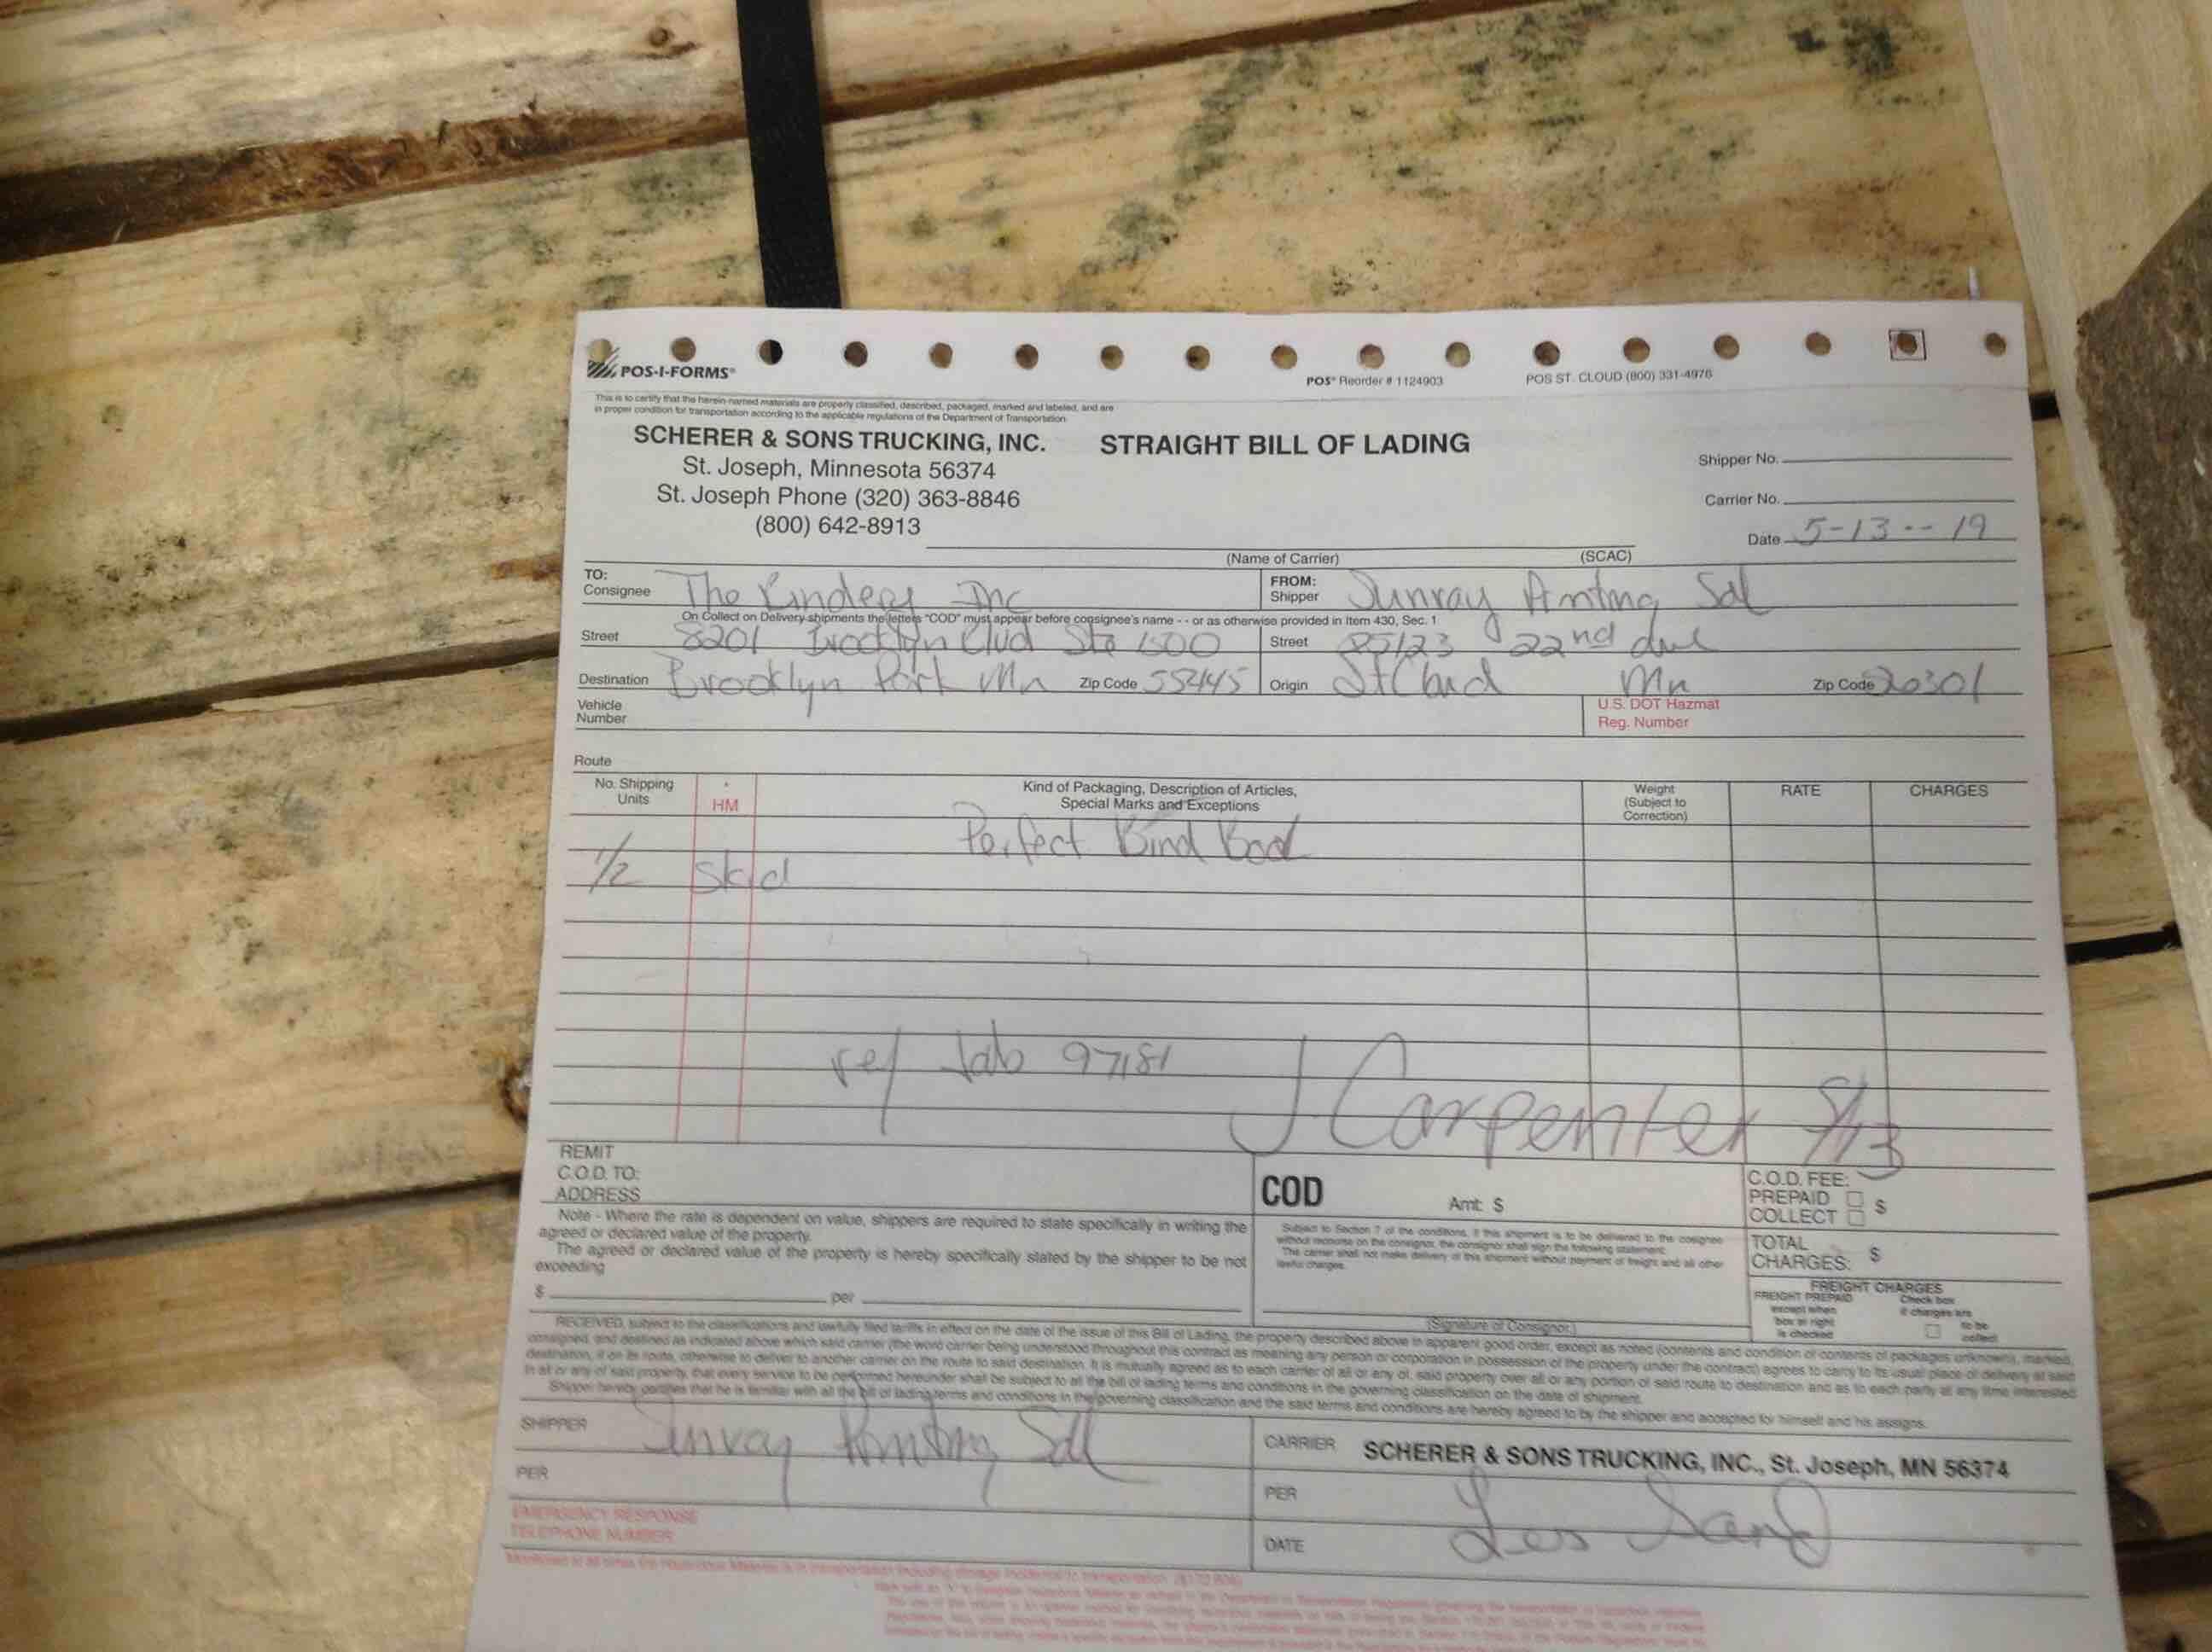 POS-I-FORMS®
POS® Reorder # 1124903
POS ST. CLOUD (800) 331-4976
This is to certify that the herein named materials are properly classified, described, packaged, marked and labeled, and are
in proper condition for transportation according to the applicable regulations of the Department of Transportation.
SCHERER & SONS TRUCKING, INC. STRAIGHT BILL OF LADING
St. Joseph, Minnesota 56374
St. Joseph Phone (320) 363-8846
(800) 642-8913
Shipper No.
Carrier No.
Date 5-13--19
(Name of Carrier) (SCAC)
TO: Consignee The Bindery Inc
FROM: Shipper Sunray Printing Sol
On Collect on Delivery shipments the letters "COD" must appear before consignee's name - - or as otherwise provided in Item 430, Sec. 1
Street 8201 Brooklyn Blvd Ste
Street 22nd Ave
Destination Brooklyn Park Mn Zip Code 55445
Origin St Cloud Mn Zip Code
Vehicle Number
U.S. DOT Hazmat
Reg. Number
Route
No. Shipping Units
* HM
Kind of Packaging, Description of Articles,
Special Marks and Exceptions
Weight
(Subject to
Correction)
RATE
CHARGES
Perfect Bind Book
1/2 Skid
ref Job 97181
J Carpenter 5/13
REMIT
C.O.D. TO:
ADDRESS
COD Amt: $
C.O.D. FEE:
PREPAID $
COLLECT
Note - Where the rate is dependent on value, shippers are required to state specifically in writing the
agreed or declared value of the property.
The agreed or declared value of the property is hereby specifically stated by the shipper to be not
exceeding
$ per
Subject to Section 7 of the conditions, if this shipment is to be delivered to the consignee
without recourse on the consignor, the consignor shall sign the following statement:
The carrier shall not make delivery of this shipment without payment of freight and all other
lawful charges.
(Signature of Consignor)
TOTAL
CHARGES: $
FREIGHT CHARGES
FREIGHT PREPAID
except when
box at right
is checked
Check box
if charges are
to be
collect
RECEIVED, subject to the classifications and lawfully filed tariffs in effect on the date of the issue of this Bill of Lading, the property described above in apparent good order, except as noted (contents and condition of contents of packages unknown), marked,
consigned, and destined as indicated above which said carrier (the word carrier being understood throughout this contract as meaning any person or corporation in possession of the property under the contract) agrees to carry to its usual place of delivery at said
destination, if on its route, otherwise to deliver to another carrier on the route to said destination. It is mutually agreed as to each carrier of all or any of, said property over all or any portion of said route to destination and as to each party at any time interested
in all or any of said property, that every service to be performed hereunder shall be subject to all the bill of lading terms and conditions in the governing classification on the date of shipment.
Shipper hereby certifies that he is familiar with all the bill of lading terms and conditions in the governing classification and the said terms and conditions are hereby agreed to by the shipper and accepted for himself and his assigns.
SHIPPER Sunray Printing Sol
CARRIER SCHERER & SONS TRUCKING, INC., St. Joseph, MN 56374
PER
PER Les Sand
EMERGENCY RESPONSE
TELEPHONE NUMBER
DATE